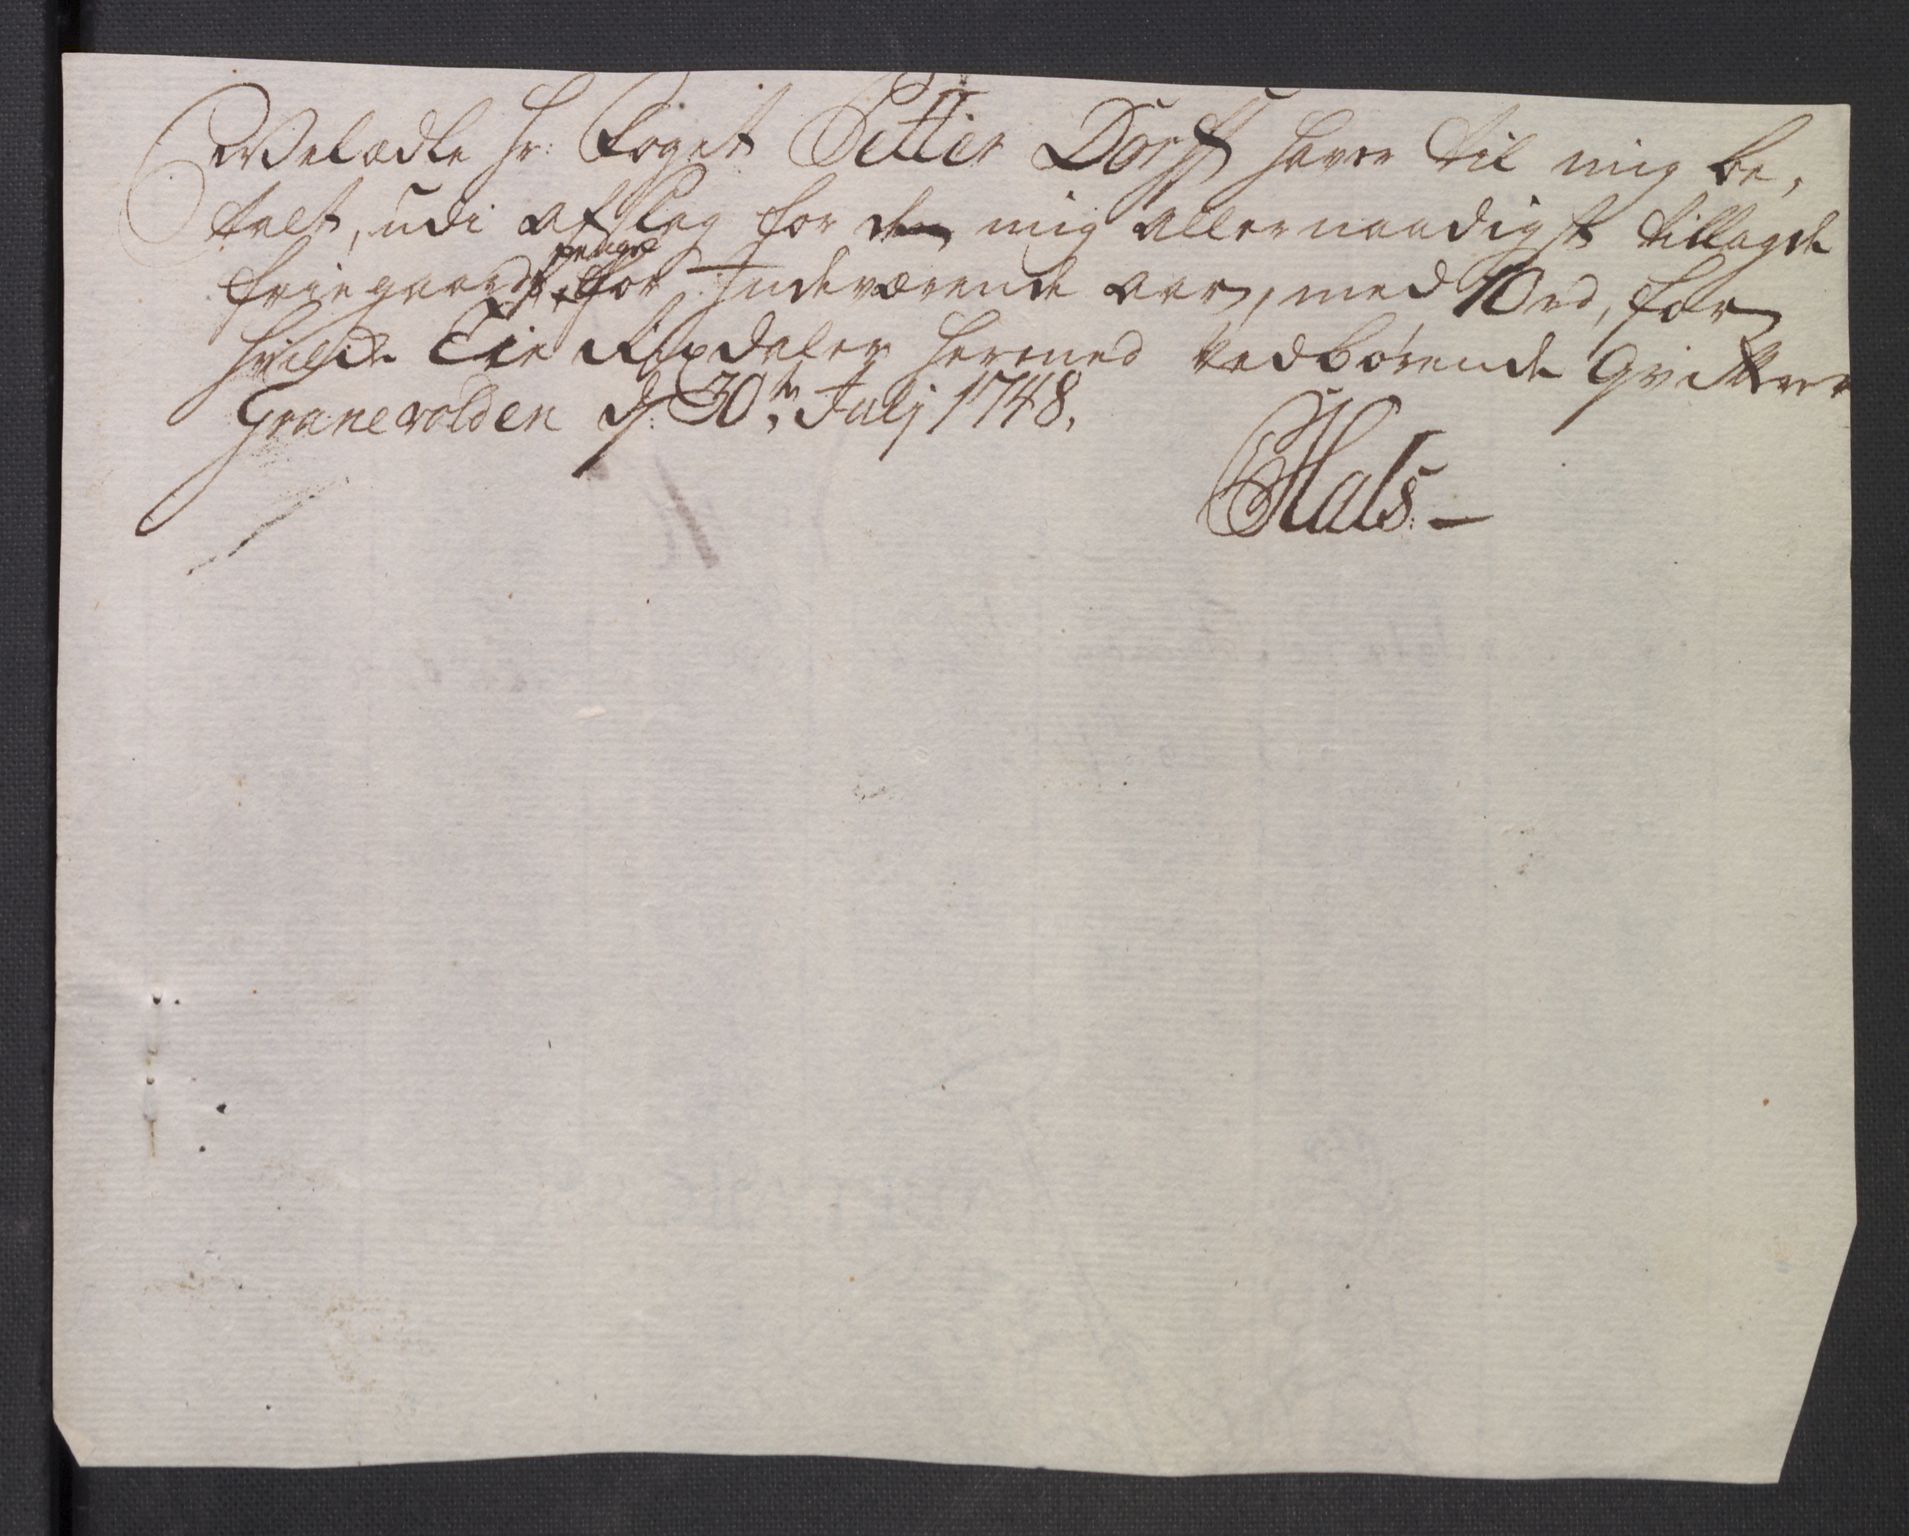 Velædle Hr: Foget Petter Dorff haver til mig be,
talt, udi afslag for de mig allernaadigst tillagde
friegaards penge for Indeværende aar, med 10 rd, for
hvilcke Tie Rixdaler hermed vedbørende Qvitterer
Granevolden d: 30te Julj 1748.
Hals.